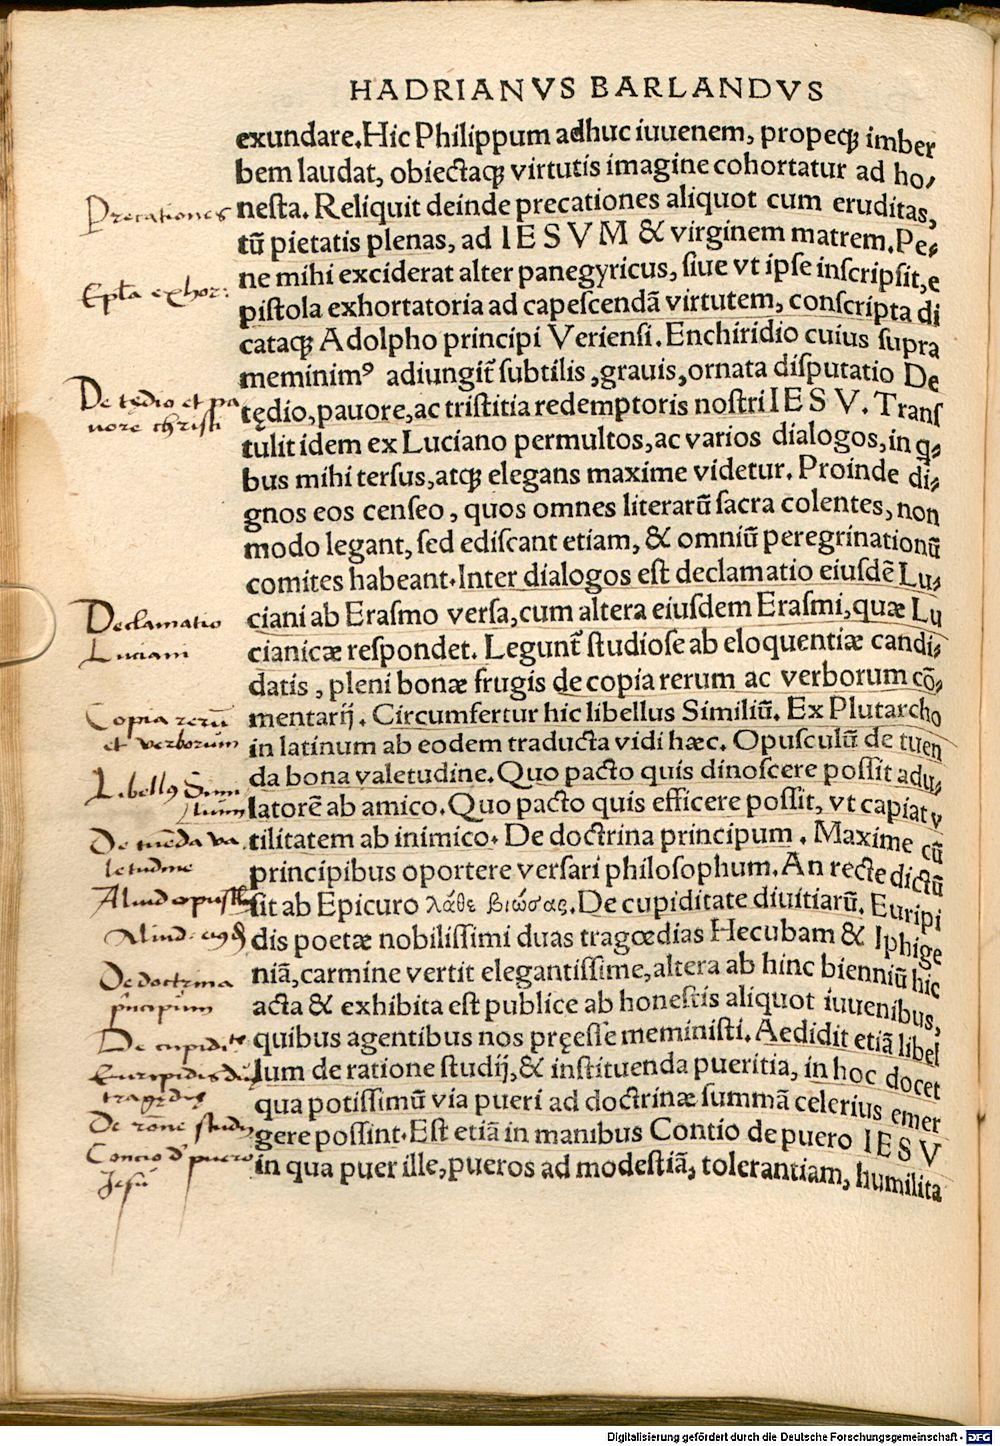 HADRIANVS BARLANDVS
exundare. Hic Philippum adhuc iuuenem, propeqꝫ imber
bem laudat, obiectaqꝫ virtutis imagine cohortatur ad ho-
nesta. Reliquit deinde precationes aliquot cum eruditas,
tū pietatis plenas, ad IESVM & virginem matrem. Pe-
ne mihi exciderat alter panegyricus, siue vt ipse inscripsit, e
pistola exhortatoria ad capescendā virtutem, conscripta di
cataqꝫ Adolpho principi Veriensi. Enchiridio cuius supra
meminimꝰ adiungit̄ subtilis, grauis, ornata disputatio De
tędio, pauore, ac tristitia redemptoris nostri IESV. Trans
tulit idem ex Luciano permultos, ac varios dialogos, in q-
bus mihi tersus, atqꝫ elegans maxime videtur. Proinde di-
gnos eos censeo, quos omnes literarū sacra colentes, non
modo legant, sed ediscant etiam, & omniū peregrinationū
comites habeant. Inter dialogos est declamatio eiusdē Lu-
ciani ab Erasmo versa, cum altera eiusdem Erasmi, quæ Lu
cianicæ respondet. Legunt̄ studiose ab eloquentiæ candi-
datis, pleni bonæ frugis de copia rerum ac verborum cō-
mentarij. Circumfertur hic libellus Similiū. Ex Plutarcho
in latinum ab eodem traducta vidi hæc. Opusculū de tuen
da bona valetudine. Quo pacto quis dinoscere possit adu-
latorē ab amico. Quo pacto quis efficere possit, vt capiat v
tilitatem ab inimico. De doctrina principum. Maxime cū
principibus oportere versari philosophum. An recte dictū
sit ab Epicuro λάθε βιώσας. De cupiditate diuitiarū. Euripi
dis poetæ nobilissimi duas tragœdias Hecubam & Iphige
niā, carmine vertit elegantissime, altera ab hinc bienniū hic
acta & exhibita est publice ab honestis aliquot iuuenibus,
quibus agentibus nos pręesse meministi. Aedidit etiā libel
lum de ratione studij, & instituenda pueritia, in hoc docet
qua potissimū via pueri ad doctrinæ summā celerius emer
gere possint. Est etiā in manibus Contio de puero IESV
in qua puer ille, pueros ad modestiā, tolerantiam, humilita
Precationes
Epl̄a exhor:
De tędio et pa
uore christi
Declamatio
Luciani
Copia rerū
et verborum
Libellꝰ Simi
lium
De tuēda va
letudine
Aliud opus
Aliud
De doctrina
pricipum
De cupidi
Euripidis du
tragędię
De rōne study
Concio d puero
Jesū
Digitalisierung gefördert durch die Deutsche Forschungsgemeinschaft - DFG